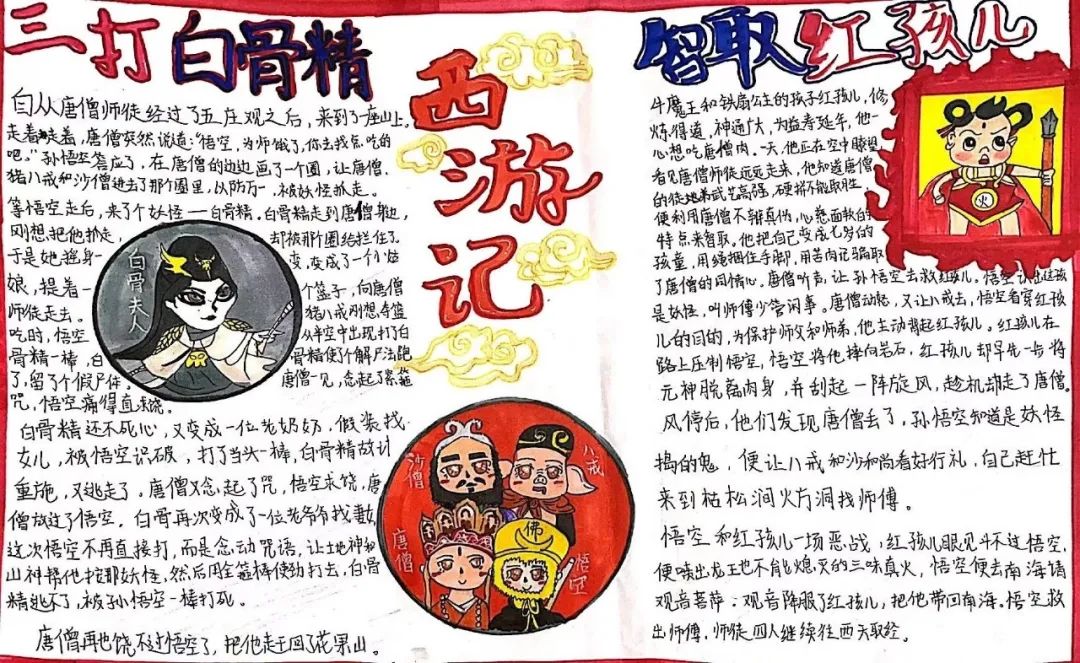 三打白骨精
自从唐僧师徒经过了五庄观之后，来到了一座山上，
走着走着，唐僧突然说道：“悟空，为师饿了，你去找点吃的
吧。”孙悟空答应了，在唐僧的边边画了一个圈，让唐僧
猪八戒和沙僧进去了那个圈里，以防万一被妖怪抓走。
等悟空走后，来了个妖怪——白骨精。白骨精走到唐僧身边，
刚想把他抓走，却被那个圈给拦住了。
于是她摇身一变，变成了一个小姑
娘，提着一个篮子，向唐僧
师徒走去。猪八戒刚想拿篮
吃时，悟空从半空中出现，打了白
骨精一棒，白骨精使个解尸法跑
了，留了个假尸体。唐僧一见，念起了紧箍
咒，悟空痛得直求饶。
白骨精还不死心，又变成一位老奶奶，假装找
女儿，被悟空识破，打了当头一棒，白骨精故计
重施，又逃走了。唐僧又念起了咒，悟空求饶，唐
僧放过了悟空。白骨再次变成了一位老爷爷找妻，
这次悟空不再直接打，而是念动咒语，让土地神和
山神帮他控那妖怪，然后用金箍棒使劲打去，白骨
精逃不了，被孙悟空一棒打死。
唐僧再也饶不过悟空了，把他赶回了花果山。
白骨夫人
西游记
沙僧
八戒
唐僧
佛
悟空
智取红孩儿
牛魔王和铁扇公主的孩子红孩儿，修
炼得道，神通广大，为益寿延年，他一
心想吃唐僧肉。一天，他正在空中瞭望
看见唐僧师徒远远走来，他知道唐僧
的徒弟武艺高强，硬拼不能取胜，
便利用唐僧不辨真伪，心慈面软的
特点来智取。他把自己变成七岁的
孩童，用绳捆住手脚，用苦肉记骗取
了唐僧的同情心。唐僧听声，让孙悟空去救红孩儿，悟空认出这孩
是妖怪，叫师傅少管闲事。唐僧动怒，又让八戒去，悟空看穿红孩
儿的目的，为保护师父和师弟，他主动背起红孩儿。红孩儿在
路上压制悟空，悟空将他摔向岩石，红孩儿却早先一步将
元神脱离肉身，并刮起一阵旋风，趁机劫走了唐僧。
风停后，他们发现唐僧丢了，孙悟空知道是妖怪
捣的鬼，便让八戒和沙和尚看好行礼，自己赶忙
来到枯松涧火方洞找师傅。
悟空和红孩儿一场恶战，红孩儿眼见斗不过悟空，
便喷出龙王也不能熄灭的三味真火，悟空便去南海请
观音菩萨；观音降服了红孩儿，把他带回南海。悟空救
出师傅，师徒四人继续往西天取经。
火